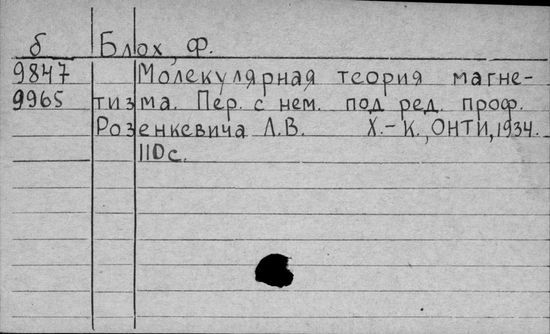 б Блох, Ф.
9847 Молекулярная теория магне-
9965 тизма. Пер. с нем. под ред. проф.
Розенкевича Л.В. Х.-К., ОНТИ, 1934.
110с.